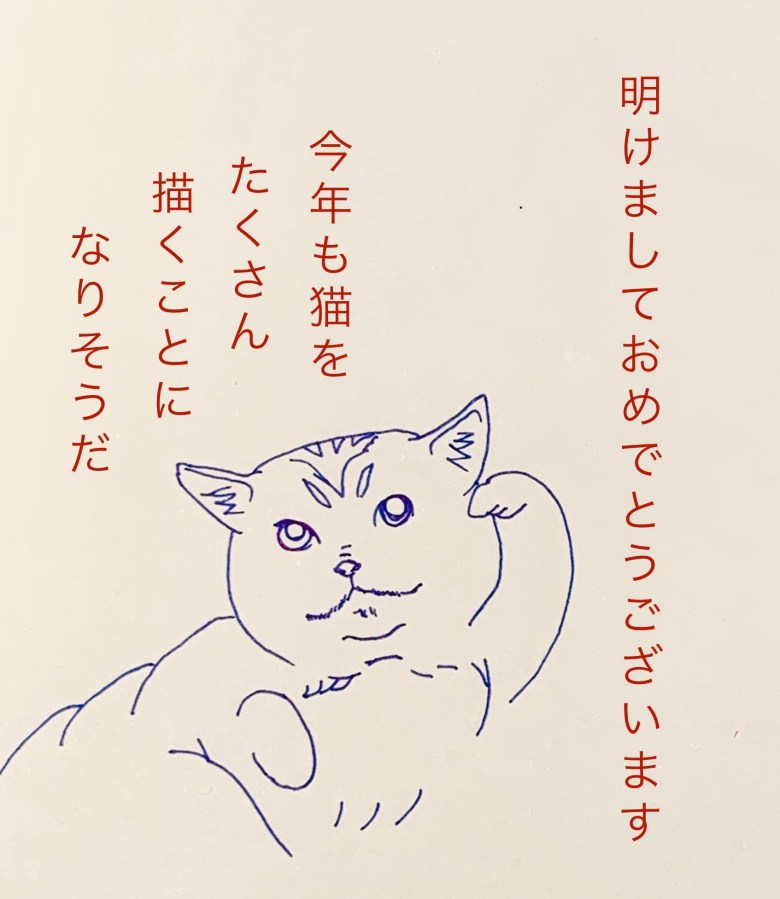 明けましておめでとうございます
今年も猫を
たくさん
描くことに
なりそうだ